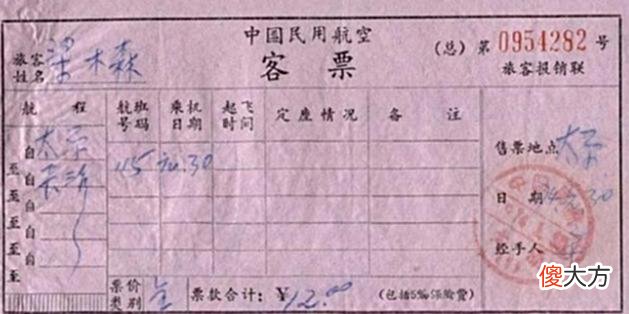 中國民用航空
(总) 第 0954282 号
旅客姓名 梁木森
客票
旅客报销联
航程
航班号码
乘机日期
起飞时间
定座情况
备注
自 太原
至 长治
自
至
自
至
自
至
45
30
售票地点 太原
日期 30
经手人
票价类别 全
票款合计: ¥12.00
(包括5%保险费)
傻大方